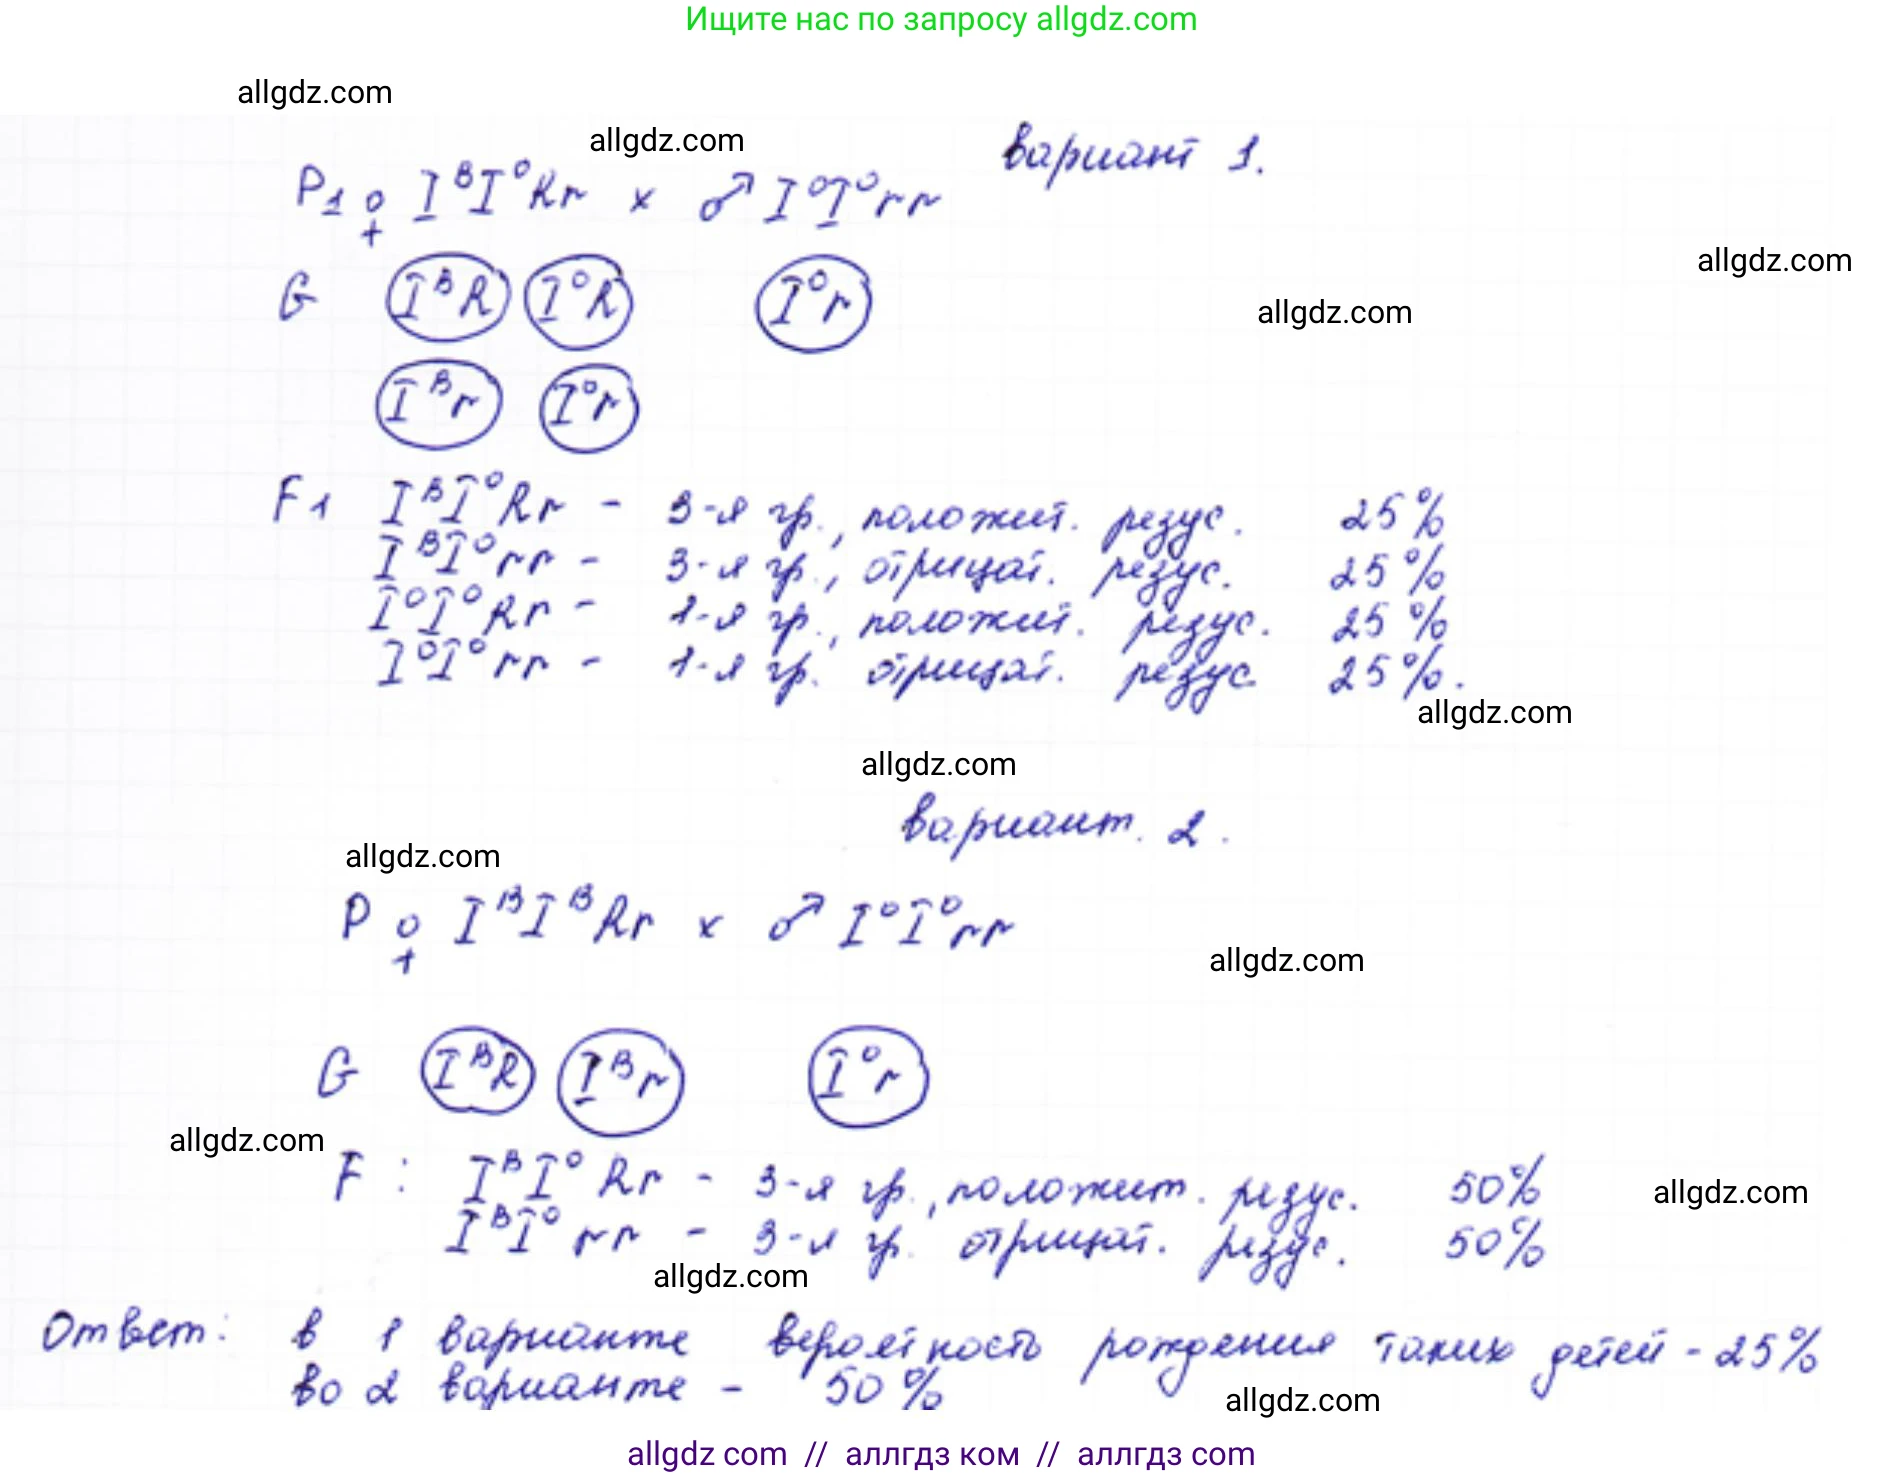 Ищите нас по запросу allgdz.com
allgdz.com
allgdz.com
вариант 1.
P1 ♀ IᴮI⁰Rr × ♂ I⁰I⁰rr
allgdz.com
G IᴮR I⁰R I⁰r
allgdz.com
Iᴮr I⁰r
F1 IᴮI⁰Rr - 3-я гр., положит. резус. 25%
IᴮI⁰rr - 3-я гр., отрицат. резус. 25%
I⁰I⁰Rr - 1-я гр., положит. резус. 25%
I⁰I⁰rr - 1-я гр. отрицат. резус 25%.
allgdz.com
allgdz.com
вариант. 2.
allgdz.com
P ♀ IᴮIᴮRr × ♂ I⁰I⁰rr
allgdz.com
G IᴮR Iᴮr I⁰r
allgdz.com
F: IᴮI⁰Rr - 3-я гр., положит. резус. 50%
allgdz.com
IᴮI⁰rr - 3-я гр. отрицат. резус. 50%
allgdz.com
Ответ: в 1 варианте вероятность рождения таких детей - 25%
во 2 варианте - 50%
allgdz.com
allgdz com // аллгдз ком // аллгдз com